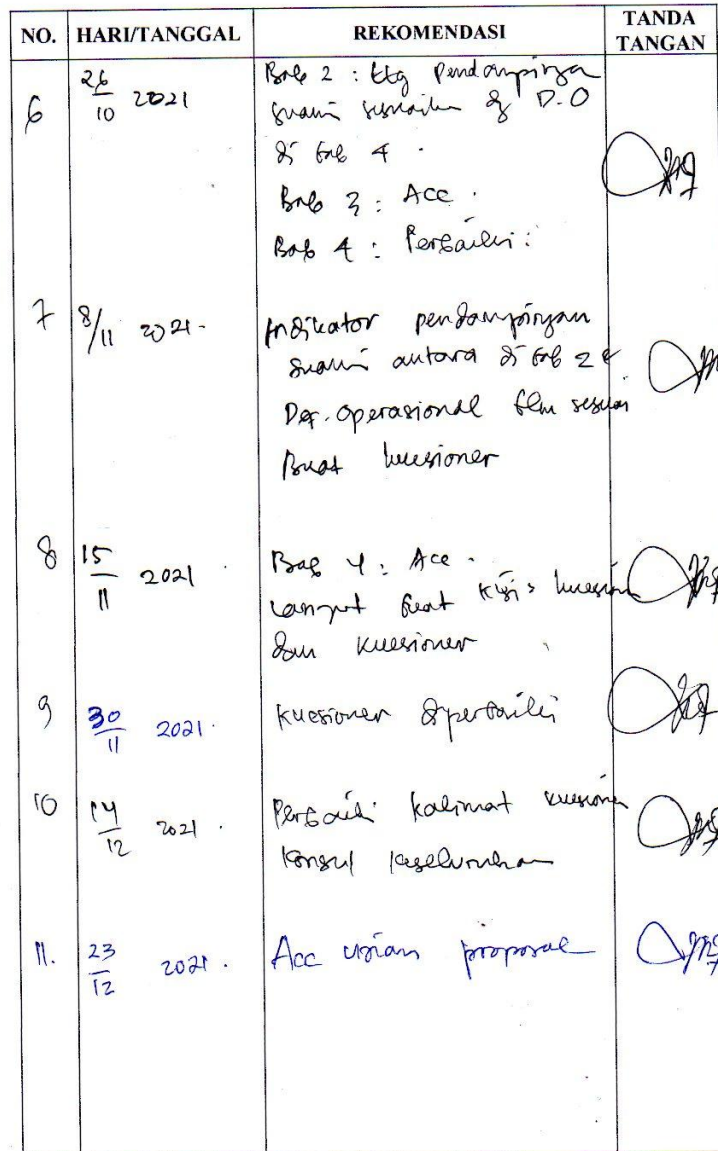 NO. HARI/TANGGAL REKOMENDASI TANDA TANGAN
6 26/10 2021 Bab 2 : ttg pendampingan
suami sesuaikan dg D.O
di bab 4 .
Bab 3 : Acc .
Bab 4 : Perbaiki :
7 8/11 2021 . Indikator pendampingan
suami antara di bab 2 &
Def. operasional blm sesuai
Buat kuesioner
8 15/11 2021 Bab 4 : Acc .
Lanjut buat kisi2 kuesioner
dan kuesioner
9 30/11 2021 . Kuesioner diperbaiki
10 14/12 2021 . Perbaiki kalimat kuesioner
Konsul keseluruhan
11. 23/12 2021 . Acc ujian proposal